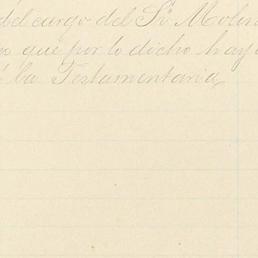 del cargo del Sr. Molin
o que por lo dicho hay
á la Testamentaria